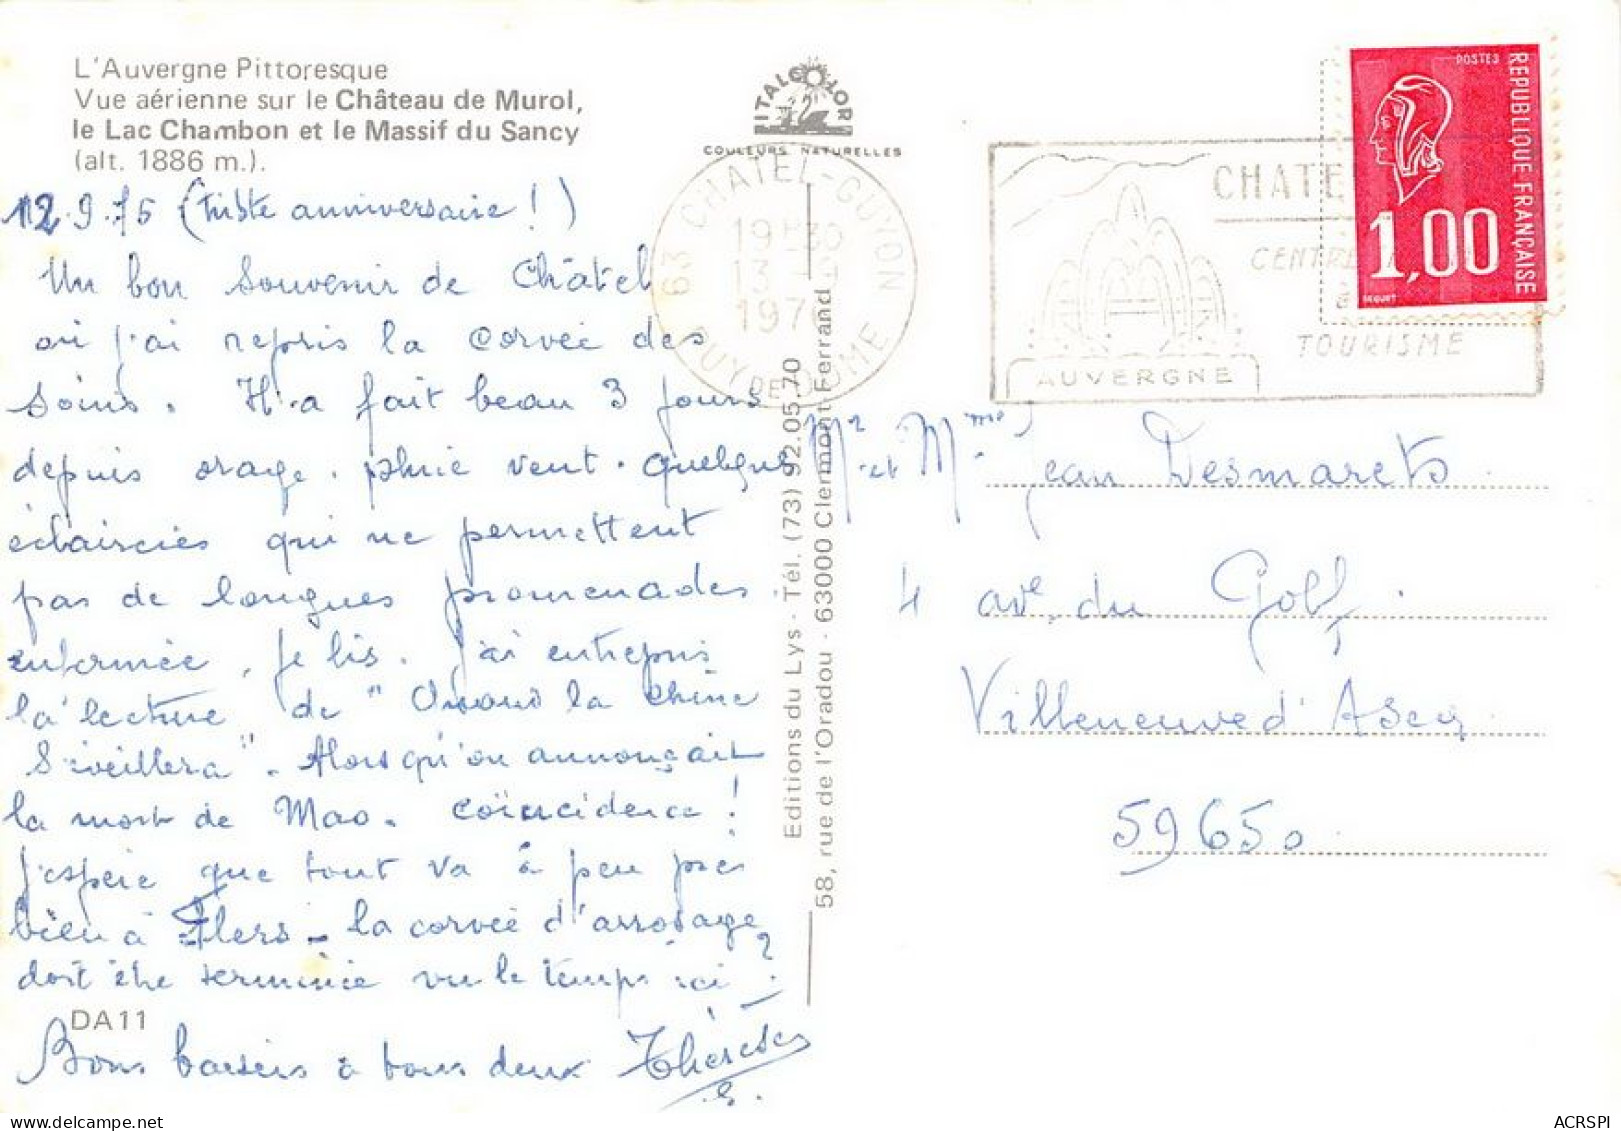 L'Auvergne Pittoresque
Vue aérienne sur le Château de Murol,
le Lac Chambon et le Massif du Sancy
(alt. 1886 m.).
12.9.76 (triste anniversaire !)
Un bon souvenir de Châtel
où j'ai repris la corvée des
soins. Il a fait beau 3 jours
depuis orage. pluie vent. quelques
éclaircies qui ne permettent
pas de longues promenades.
enfermée, je lis. J'ai entrepris
la lecture de "Quand la chine
s'éveillera". Alors qu'on annonçait
la mort de Mao. coïncidence !
j'espère que tout va à peu près
bien à Flers - la corvée d'arrosage
doit être terminée vu le temps ici ?
DA11
Bons baisers à tous deux Thérèse
ITALCOLOR
COULEURS NATURELLES
63 CHATEL-GUYON
19H30
13 - 9
1976
PUY DE DOME
Editions du Lys - Tél. (73) 92.05.70
58, rue de l'Oradou - 63000 Clermont-Ferrand
CHATE
CENTRE
TOURISME
AUVERGNE
POSTES
REPUBLIQUE FRANÇAISE
1,00
BEQUET
Mr et Mme Jean Desmarets
4 ave du Golf
Villeneuve d'Ascq
59650
ACRSPI